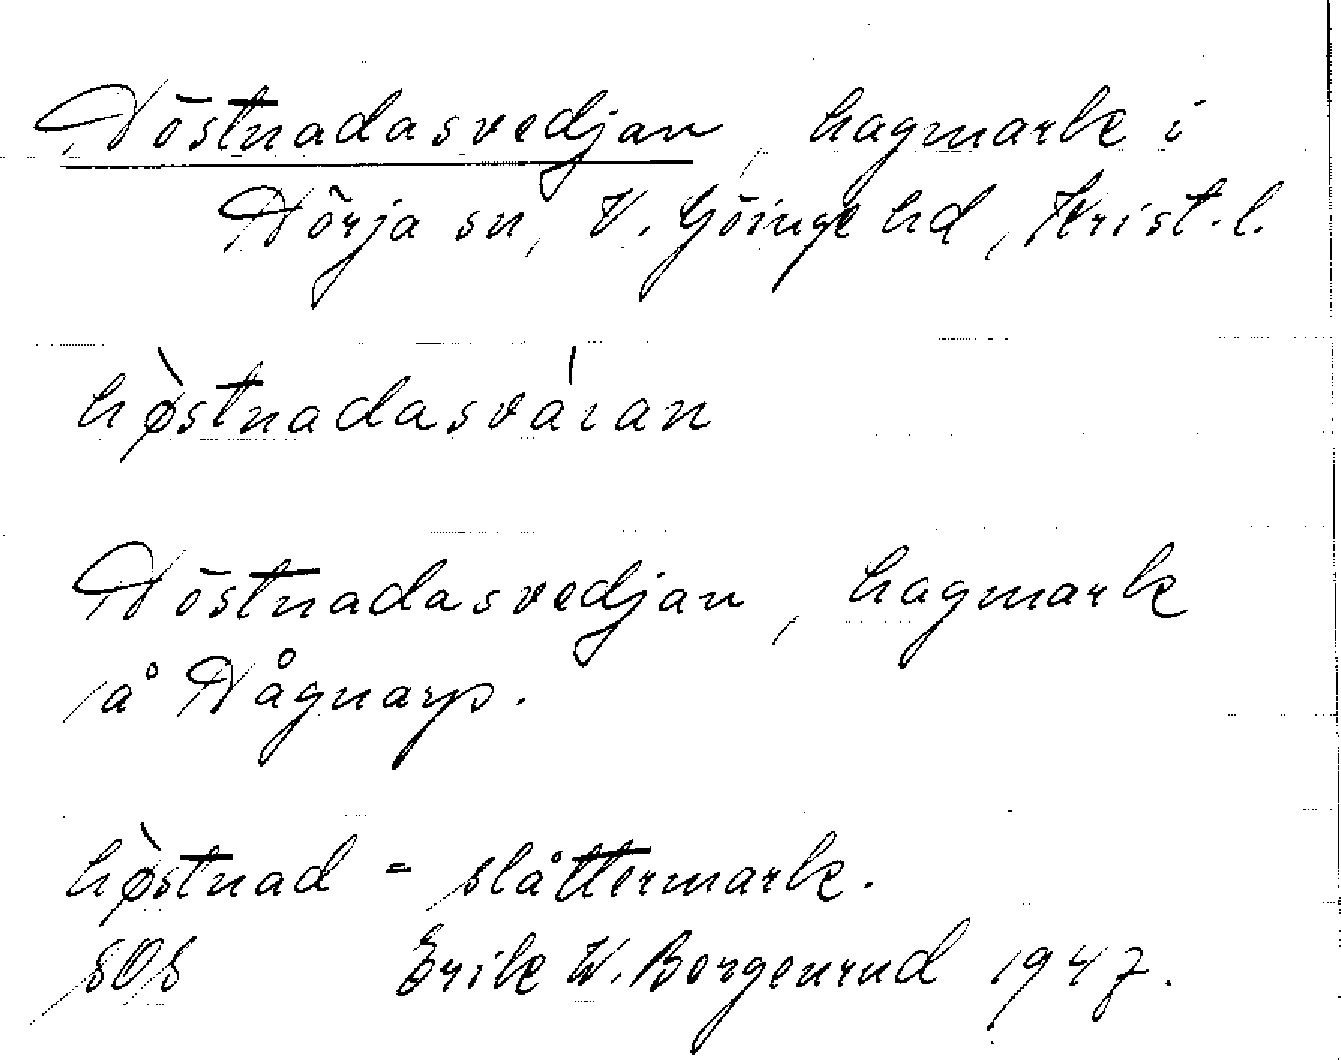 Höstnadasvedjan, hagmark i
Hörja sn, V. Göinge hd, Krist. l.
hø̀stnadasváran
Höstnadasvedjan, hagmark
å Hågnarp.
hø̀stnad = slåttermark.
SOS Erik W. Borgenrud 1947.